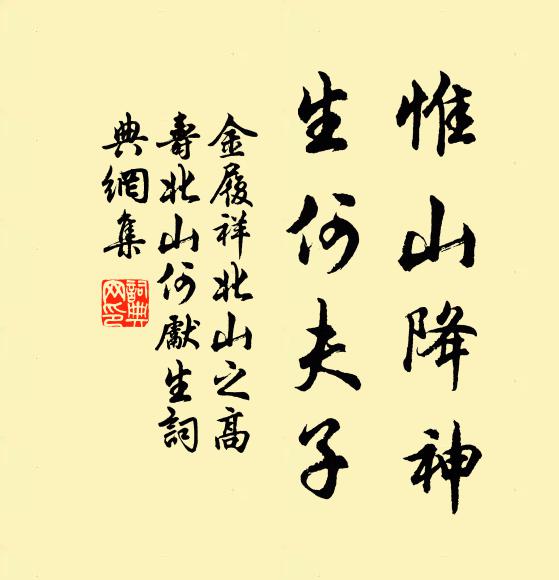 惟山降神
生何夫子
金履祥北山之高
壽北山何獻生詞
典網集
詞典
网印